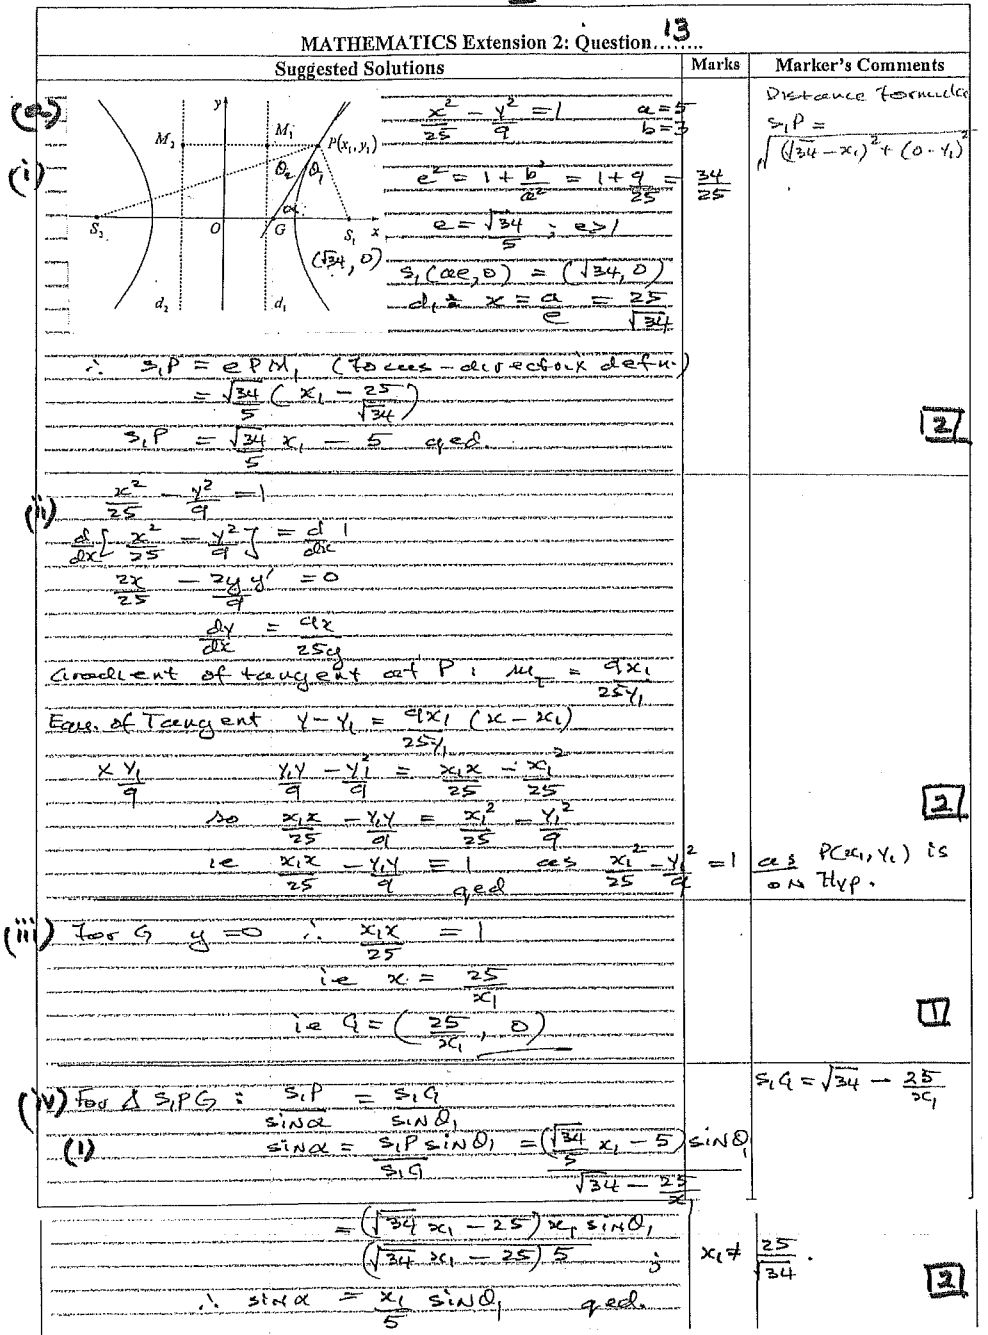 13
MATHEMATICS Extension 2: Question........
Suggested Solutions
Marks
Marker's Comments
(a)
(i)
y
M₂
M₁
P(x₁, y₁)
θ₂
θ₁
α
S₂
O
G
S₁
x
(√34, 0)
d₂
d₁
x²/25 - y²/9 = 1
a=5
b=3
e² = 1 + b²/a² = 1 + 9/25 = 34/25
e = √34/5 ; e>1
S₁(ae, 0) = (√34, 0)
d₁ : x = a/e = 25/√34
Distance formula
S₁P =
√((√34 - x₁)² + (0 - y₁)²
∴ S₁P = e PM₁ (Focus-directrix defn.)
= √34/5 (x₁ - 25/√34)
S₁P = √34/5 x₁ - 5 qed.
2
(ii)
x²/25 - y²/9 = 1
d/dx[x²/25 - y²/9] = d/dx 1
2x/25 - 2y y'/9 = 0
dy/dx = 9x/25y
Gradient of tangent at P : m_T = 9x₁/25y₁
Equ. of Tangent y - y₁ = 9x₁/25y₁ (x - x₁)
× y₁/9 y₁y/9 - y₁²/9 = x₁x/25 - x₁²/25
so x₁x/25 - y₁y/9 = x₁²/25 - y₁²/9
2
ie x₁x/25 - y₁y/9 = 1 as x₁²/25 - y₁²/9 = 1
qed
as P(x₁, y₁) is
on Hyp.
(iii) For G y = 0 ∴ x₁x/25 = 1
ie x = 25/x₁
ie G = (25/x₁, 0)
1
(iv) For Δ S₁PG : S₁P/sinα = S₁G/sinθ₁
S₁G = √34 - 25/x₁
(1)
sinα = S₁P sinθ₁/S₁G = (√34/5 x₁ - 5) sinθ₁/√34 - 25/x
= (√34 x₁ - 25) x₁ sinθ₁/(√34 x₁ - 25) 5 ; x₁ ≠ 25/√34.
∴ sinα = x₁/5 sinθ₁ qed.
2